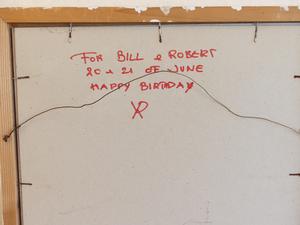 FOR BILL & ROBERT
20 & 21 OF JUNE
HAPPY BIRTHDAY